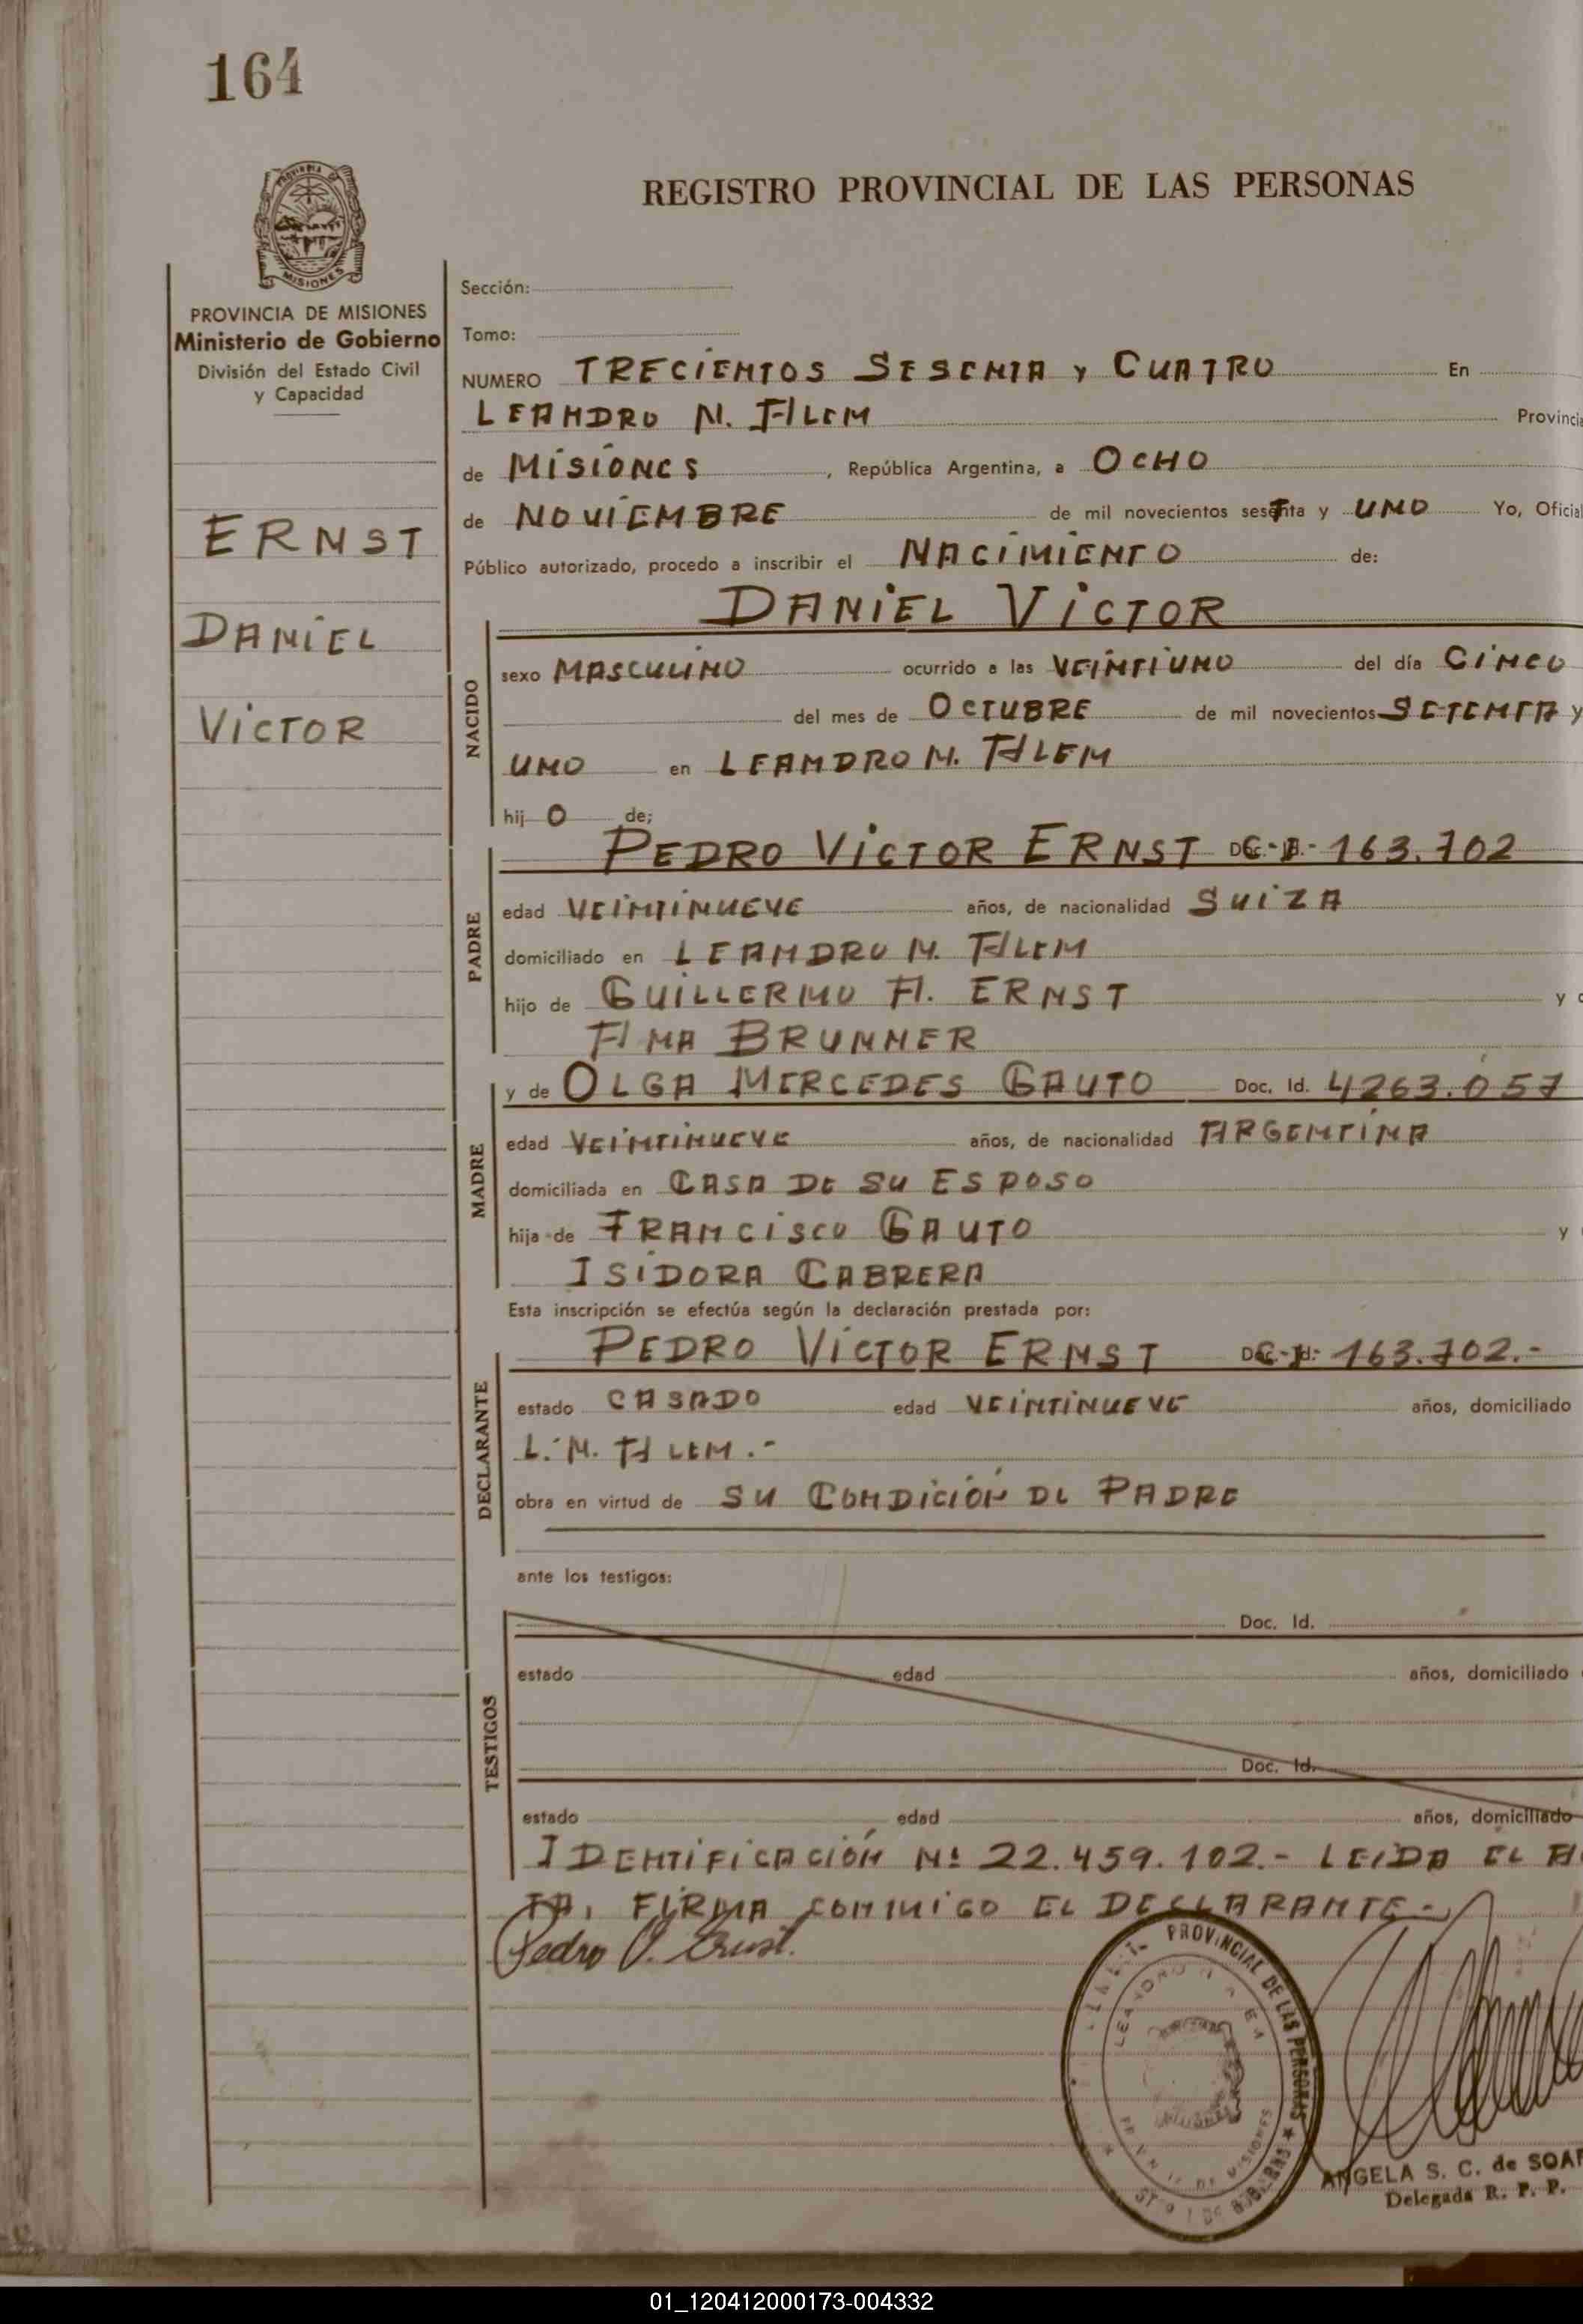 164
PROVINCIA DE MISIONES
REGISTRO PROVINCIAL DE LAS PERSONAS
PROVINCIA DE MISIONES
Ministerio de Gobierno
División del Estado Civil
y Capacidad
ERNST
DANIEL
VICTOR
Sección:
Tomo:
NUMERO TRECIENTOS SESENTA Y CUATRO En
LEANDRO N. ALEM Provincia
de MISIONES, República Argentina, a OCHO
de NOVIEMBRE de mil novecientos sesenta y UNO Yo, Oficial
Público autorizado, procedo a inscribir el NACIMIENTO de:
DANIEL VICTOR
NACIDO
sexo MASCULINO ocurrido a las VEINTIUNO del día CINCO
del mes de OCTUBRE de mil novecientos SETENTA y
UNO en LEANDRO N. ALEM
hij O de;
PEDRO VICTOR ERNST 163.702
PADRE
edad VEINTINUEVE años, de nacionalidad SUIZA
domiciliado en LEANDRO N. ALEM
hijo de GUILLERMO A. ERNST y
ANA BRUNNER
y de OLGA MERCEDES GAUTO Doc. Id. 4263.057
MADRE
edad VEINTINUEVE años, de nacionalidad ARGENTINA
domiciliada en CASA DE SU ESPOSO
hija de FRANCISCO GAUTO y
ISIDORA CABRERA
Esta inscripción se efectúa según la declaración prestada por:
PEDRO VICTOR ERNST 163.702.-
DECLARANTE
estado CASADO edad VEINTINUEVE años, domiciliado
L. N. ALEM.-
obra en virtud de SU CONDICIÓN DE PADRE
ante los testigos:
TESTIGOS
Doc. Id.
estado edad años, domiciliado
Doc. Id.
estado edad años, domiciliado
IDENTIFICACIÓN Nº 22.459.102.- LEIDA EL A
TA, FIRMA CONMIGO EL DECLARANTE.-
Pedro V. Ernst.
PROVINCIAL DE LAS PERSONAS
LEANDRO N. ALEM
DE MISIONES
ANGELA S. C. de SOAR
Delegada R. P. P.
01_120412000173-004332